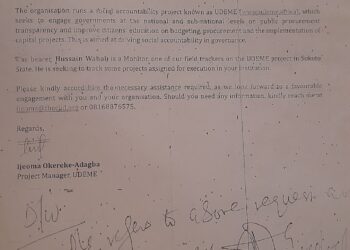 The organisation runs a social accountability project known as UDEME which
seeks to engage governments at the national and sub-national levels on public procurement
transparency and improve citizens' education on budgeting, procurement and the implementation of
capital projects. This is aimed at driving social accountability in governance.
The bearer, Hussain Wahab is a Monitor, one of our field trackers on the UDEME project in Sokoto
State. He is seeking to track some projects assigned for execution in your institution.
Please kindly accord him the necessary assistance required, as we look forward to a favourable
engagement with you and your organisation. Should you need any information, kindly reach me at
or 08168876575.
Regards,
Ijeoma Okereke-Adagba
Project Manager, UDEME
refers to above request